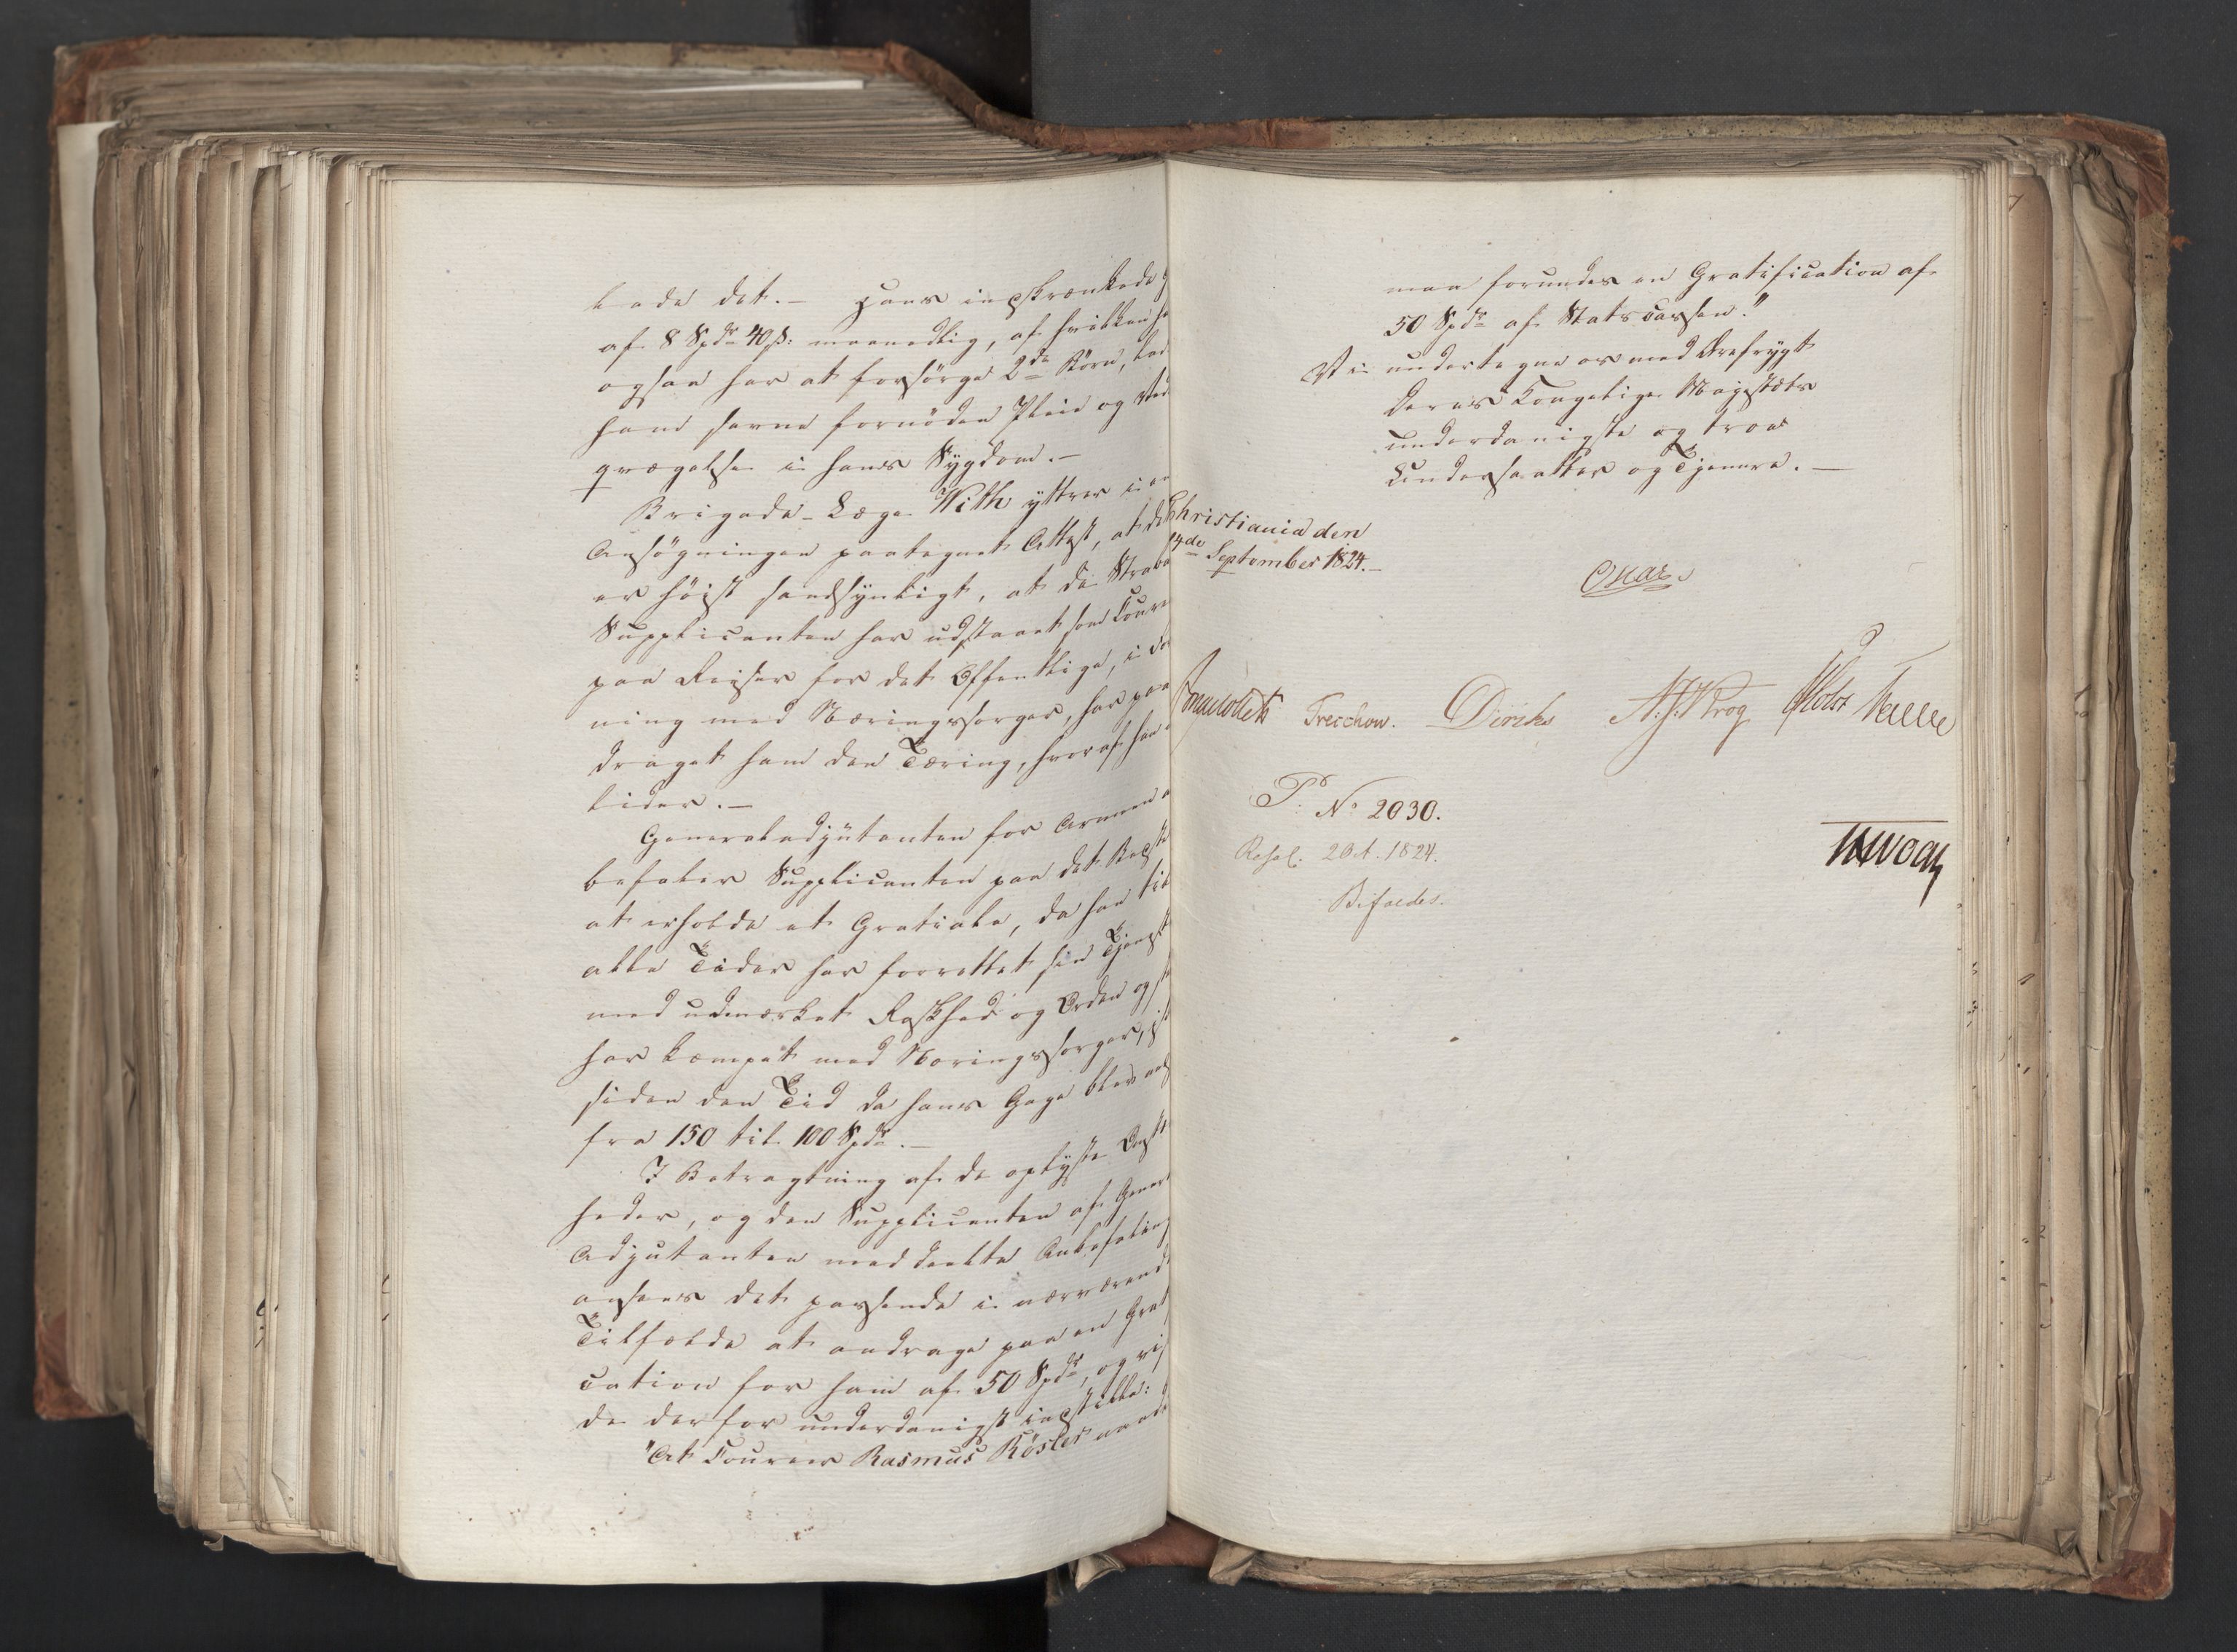 lade det. – Hans indskrænkede
af 8 Spdr 40 ß: maanedlig, af hvilken
ogsaa har at forsörge 2de Börn, lod
ham savne fornöden Pleie og Ved
qvægelse i hans Sygdom. –
Brigade-Læge With yttrer i en
Ansögningen paategnet Attest, at det
er höist sandsynligt, at de Straba
Supplicanten har udstaaet som Coure
paa Reiser for det Offentlige, i
ning med Næringssorger, har paa
draget ham den Tæring, hvoraf han
lider. –
Generaladjutanten for Armeen
befaler Supplicanten paa det Bedste
at erholde et Gratiale, da han til
alle Tider har forrettet sin Tjenst
med udmærket Raskhed og Orden og
har kæmpet med Næringssorger,
siden den Tid da hans Gage blev
fra 150 til 100 Spdr. –
I Betragtning af de oplyste
heder, og den Supplicanten af Gener
Adjutanten meddeelte Anbefaling
ansees det passende i nærværende
Tilfælde at andrage paa en Grat
cation for ham af 50 Spdr, og
de derfor underdanigst indstille:
"At Coureer Rasmus Rösler
maa forundes en Gratification af
50 Spdr af Statscassen."
Vi undertegne os med Ærefrygt
Deres Kongelige Majestæts
underdanigste og troe
Undersaatter og Tjenere. –
Christiania den
14de September 1824. –
Oscar
Treschow. Diriks N. J. Krog Holst
P. No 2030.
Resol. 2 Oct. 1824.
Bifaldes.